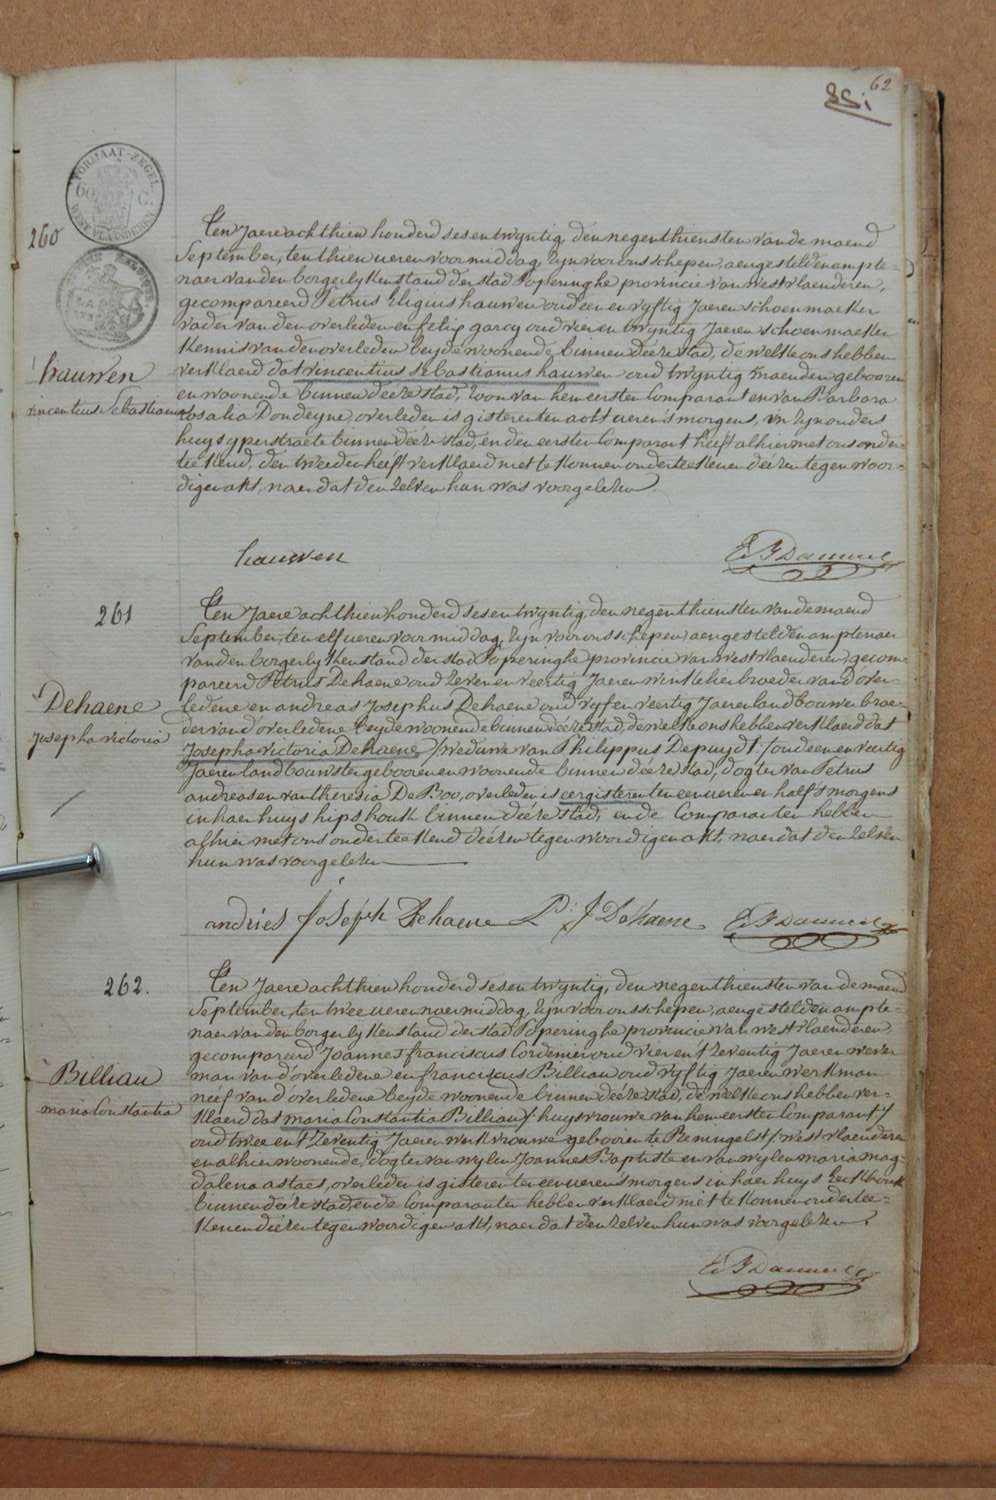 62
85i
FORMAAT-ZEGEL
60 C.
WEST VLAANDEREN
260
hauwen
vincentius Sebastianus
Ten Jaere achthien honderd sesentwyntig, den negenthiensten van de maend
September, ten thien ueren voormiddag, zyn voor ons schepen, aengestelden ampte-
naer van den borgerlyken stand der stad Poperinghe provincie van westvlaenderen,
gecompareerd Petrus Eligius hauwen oud een en vyftig Jaeren schoenmaeker
vader van den overleden en felix garcy oud vier en twyntig Jaeren schoenmaeker
kennis van den overleden beyde woonende binnen deéze stad, de welke ons hebben
verklaerd dat vincentius sebastianus hauwen oud twyntig maenden gebooren
en woonende binnen deeze stad, zoon van hem eersten Comparant en van Barbara
rosalia Dondeyne, overleden is gisteren ten acht ueren s'morgens, in zyn ouders
huys yperstraete binnen deéze stad, en den eersten Comparant heeft alhier met ons onder-
teékend, den tweeden heeft verklaerd niet te konnen onderteekenen deézen tegenwoor-
digen akt, naer dat den zelven hun was voorgelezen.
hauwen
261
Dehaene
Josepha victoria
Ten Jaere achthien honderd sesentwyntig, den negenthiensten van de maend
September, ten elf ueren voormiddag, zyn voor ons schepen, aengestelden amptenaer
van den borgerlyken stand der stad Poperinghe provincie van westvlaenderen, gecom-
pareerd Petrus Dehaene oud zeven en veertig Jaeren winkelier broeder van d'over-
ledene en andreas Josephus Dehaene oud vyf en veertig Jaeren landbouwer broe-
der van d'overledene beyde woonende binnen deéze stad, de welke ons hebben verklaerd dat
Josepha victoria Dehaene /weduwe van Philippus Depuydt:/ oud een en veertig
Jaeren landbouwster gebooren en woonende binnen deéze stad, dogter van Petrus
andreas en van theresia De Boo, overleden is eergisteren ten een uer en half s'morgens
in haer huys hipshouk binnen deéze stad, en de Comparanten hebben
alhier met ons onderteekend deézen tegenwoordigen akt, naer dat den zelven
hun was voorgelezen
andries Joséph Dehaene P: J Dehaene
262.
Billiau
maria Constantia
Ten Jaere achthien honderd sesentwyntig, den negenthiensten van de maend
September, ten twee ueren naermiddag, zyn voor ons schepen, aengestelden ampte-
naer van den borgerlyken stand der stad Poperinghe provincie van westvlaenderen,
gecompareerd Joannes franciscus Cordemier oud vier en t'zeventig Jaeren wever
man van d'overledene en franciscus Billiau oud vyftig Jaeren werkman
neef van d'overledene beyde woonende binnen deéze stad, de welke ons hebben ver-
klaerd dat maria Constantia Billiau /huysvrouwe van hem eersten Comparant/
oud twee en t'zeventig Jaeren werkvrouwe gebooren te Reningelst /westvlaenderen
en alhier woonende, dogter van wylen Joannes Baptiste en van wylen maria mag-
dalena astaes, overleden is gisteren ten een ueren s'morgens in haer huys
binnen deéze stad, en de Comparanten hebben verklaerd niet te konnen ondertee-
kenen deézen tegenwoordigen akt, naer dat den zelven hun was voorgelezen.